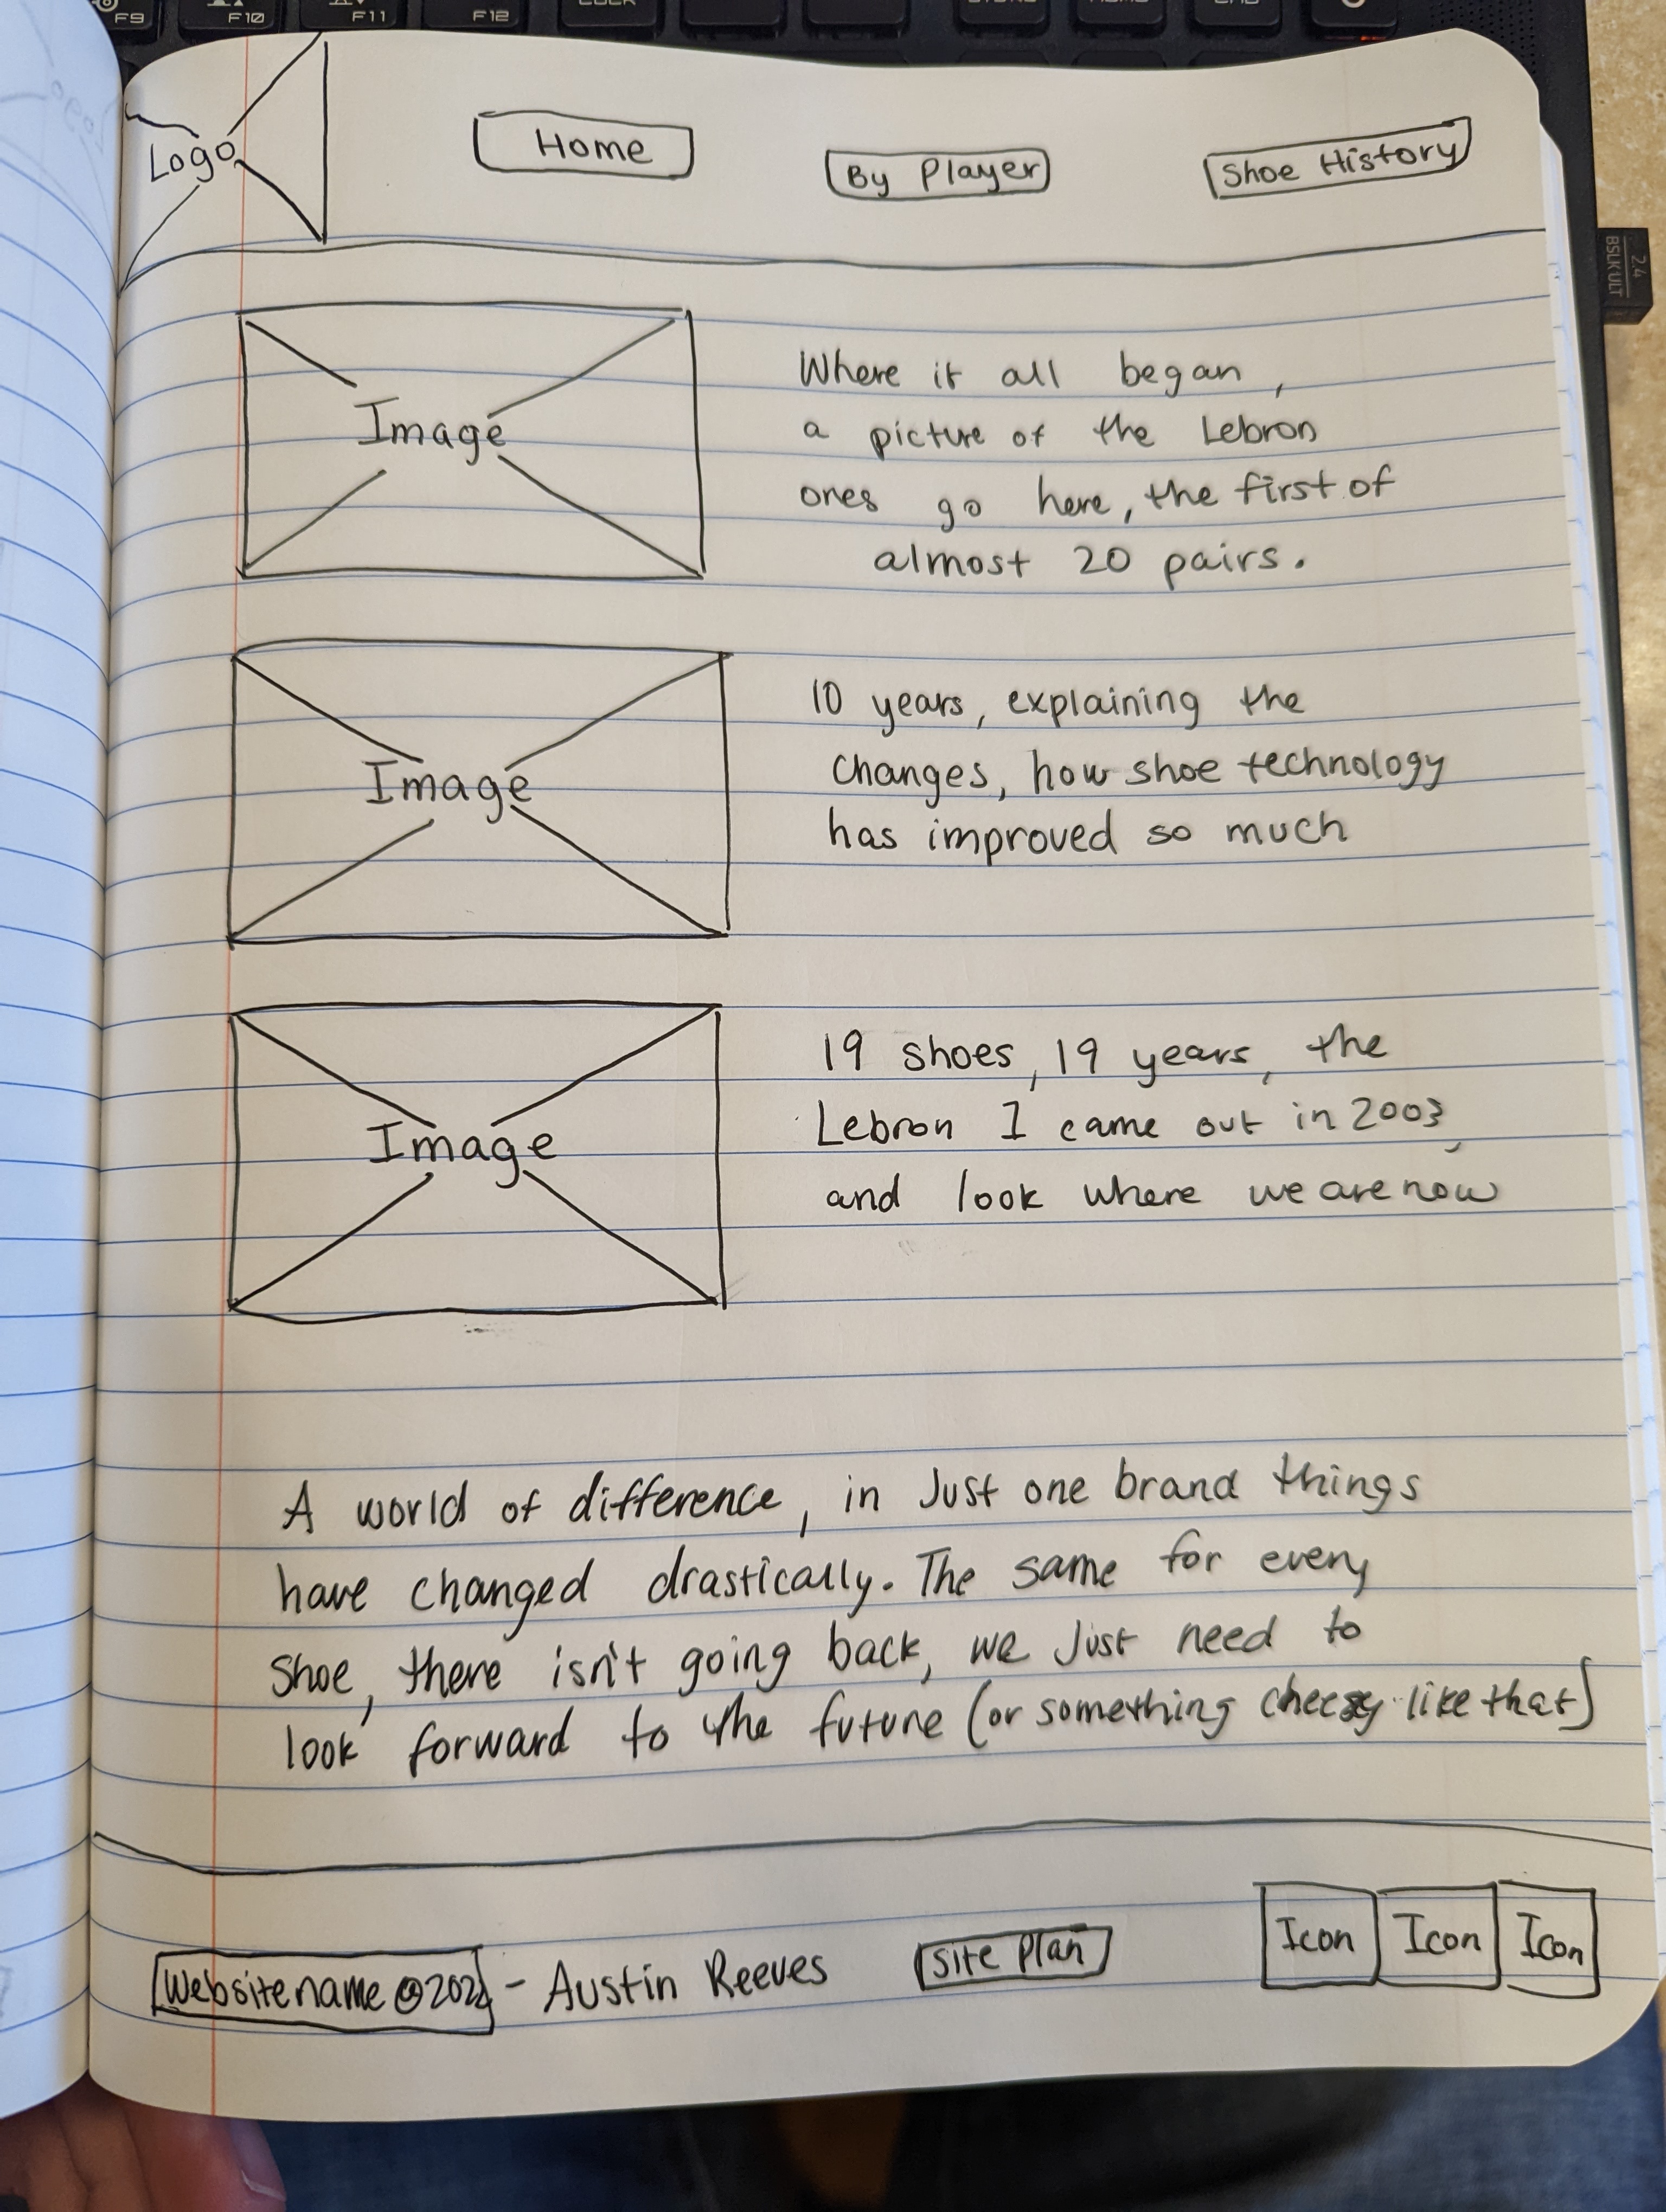 F9 F10 F11 F12
Logo
Home
By Player
Shoe History
2.4
BSLKULT
Image
Where it all began,
a picture of the Lebron
ones go here, the first of
almost 20 pairs.
Image
10 years, explaining the
changes, how shoe technology
has improved so much
Image
19 shoes, 19 years, the
Lebron I came out in 2003,
and look where we are now
A world of difference, in Just one brand things
have changed drastically. The same for every
shoe, there isn't going back, we Just need to
look forward to the future (or something cheesy like that)
Websitename @202 - Austin Reeves
Site Plan
Icon Icon Icon